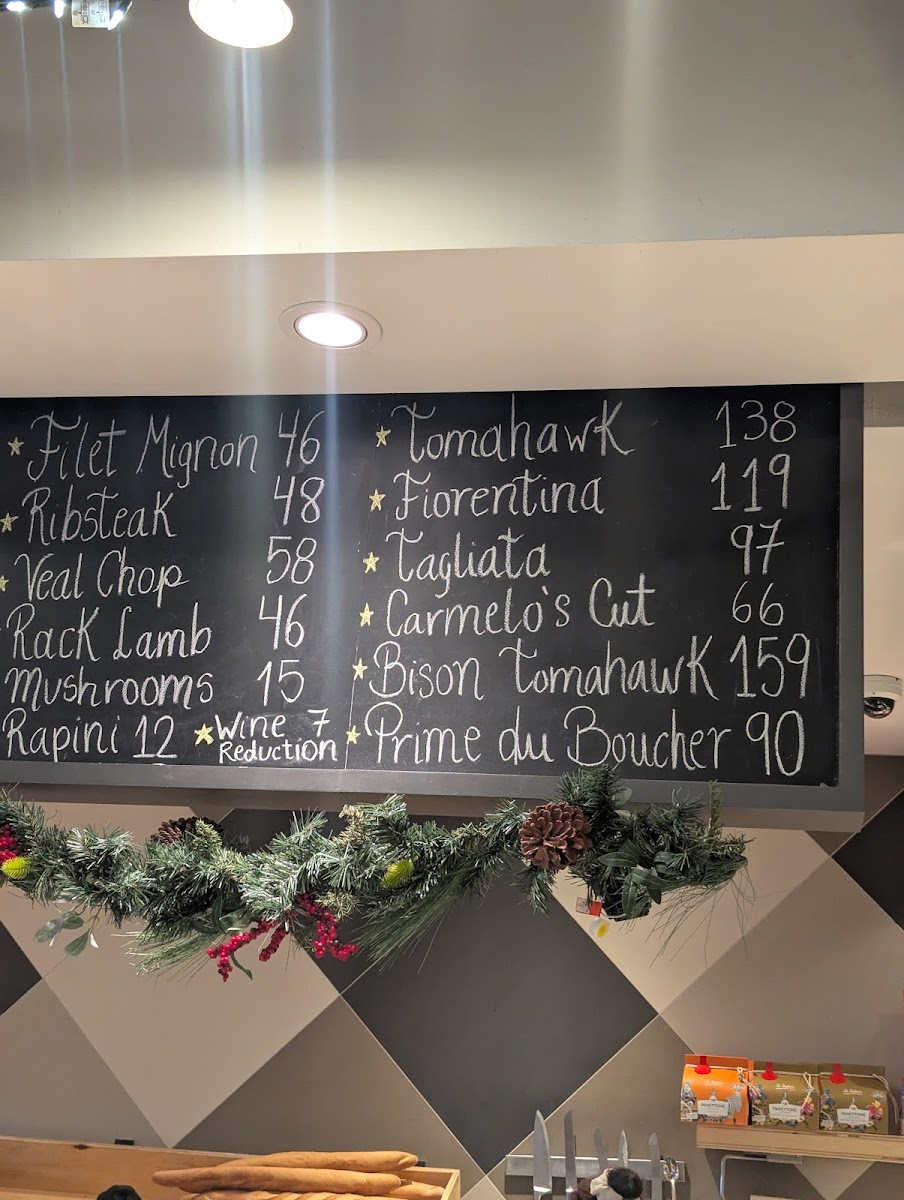 Filet Mignon 46
Ribsteak 48
Veal Chop 58
Rack Lamb 46
Mushrooms 15
Rapini 12
Wine 7
Reduction
Tomahawk 138
Fiorentina 119
Tagliata 97
Carmelo's Cut 66
Bison Tomahawk 159
Prime du Boucher 90
PANETTONE
PANETTONE
PANETTONE